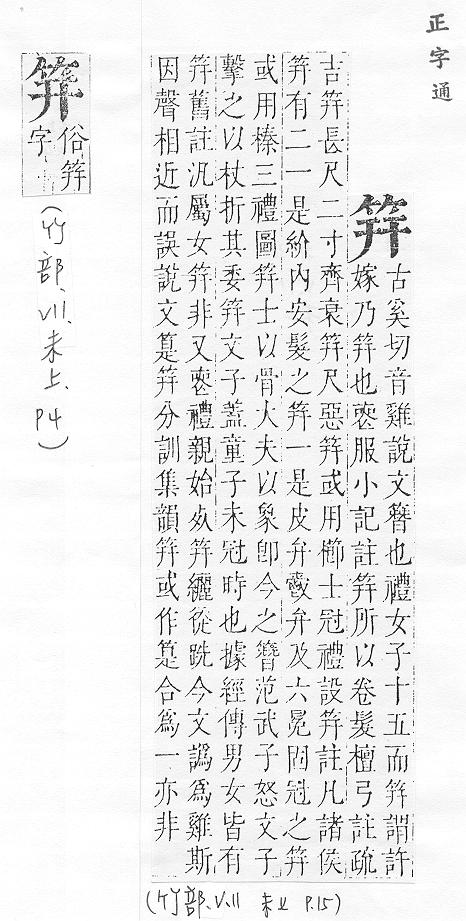 正字通
筓
古奚切音雞說文簪也禮女子十五而筓謂許
嫁乃筓也喪服小記註筓所以卷髮檀弓註疏
吉筓長尺二寸齊衰筓尺惡筓或用櫛士冠禮設筓註凡諸侯
筓有二一是紒內安髮之筓一是皮弁爵弁及六冕固冠之筓
或用榛三禮圖筓士以骨大夫以象卽今之簪范武子怒文子
擊之以杖折其委筓文子蓋童子未冠時也據經傳男女皆有
筓舊註汎屬女筓非又喪禮親始死筓纚徒跣今文譌爲雞斯
因聲相近而誤說文䈕筓分訓集韻筓或作䈕合爲一亦非
(竹部、V.11 未上 P.15)
笄
俗筓
字
(竹部、VII、未上、P4)